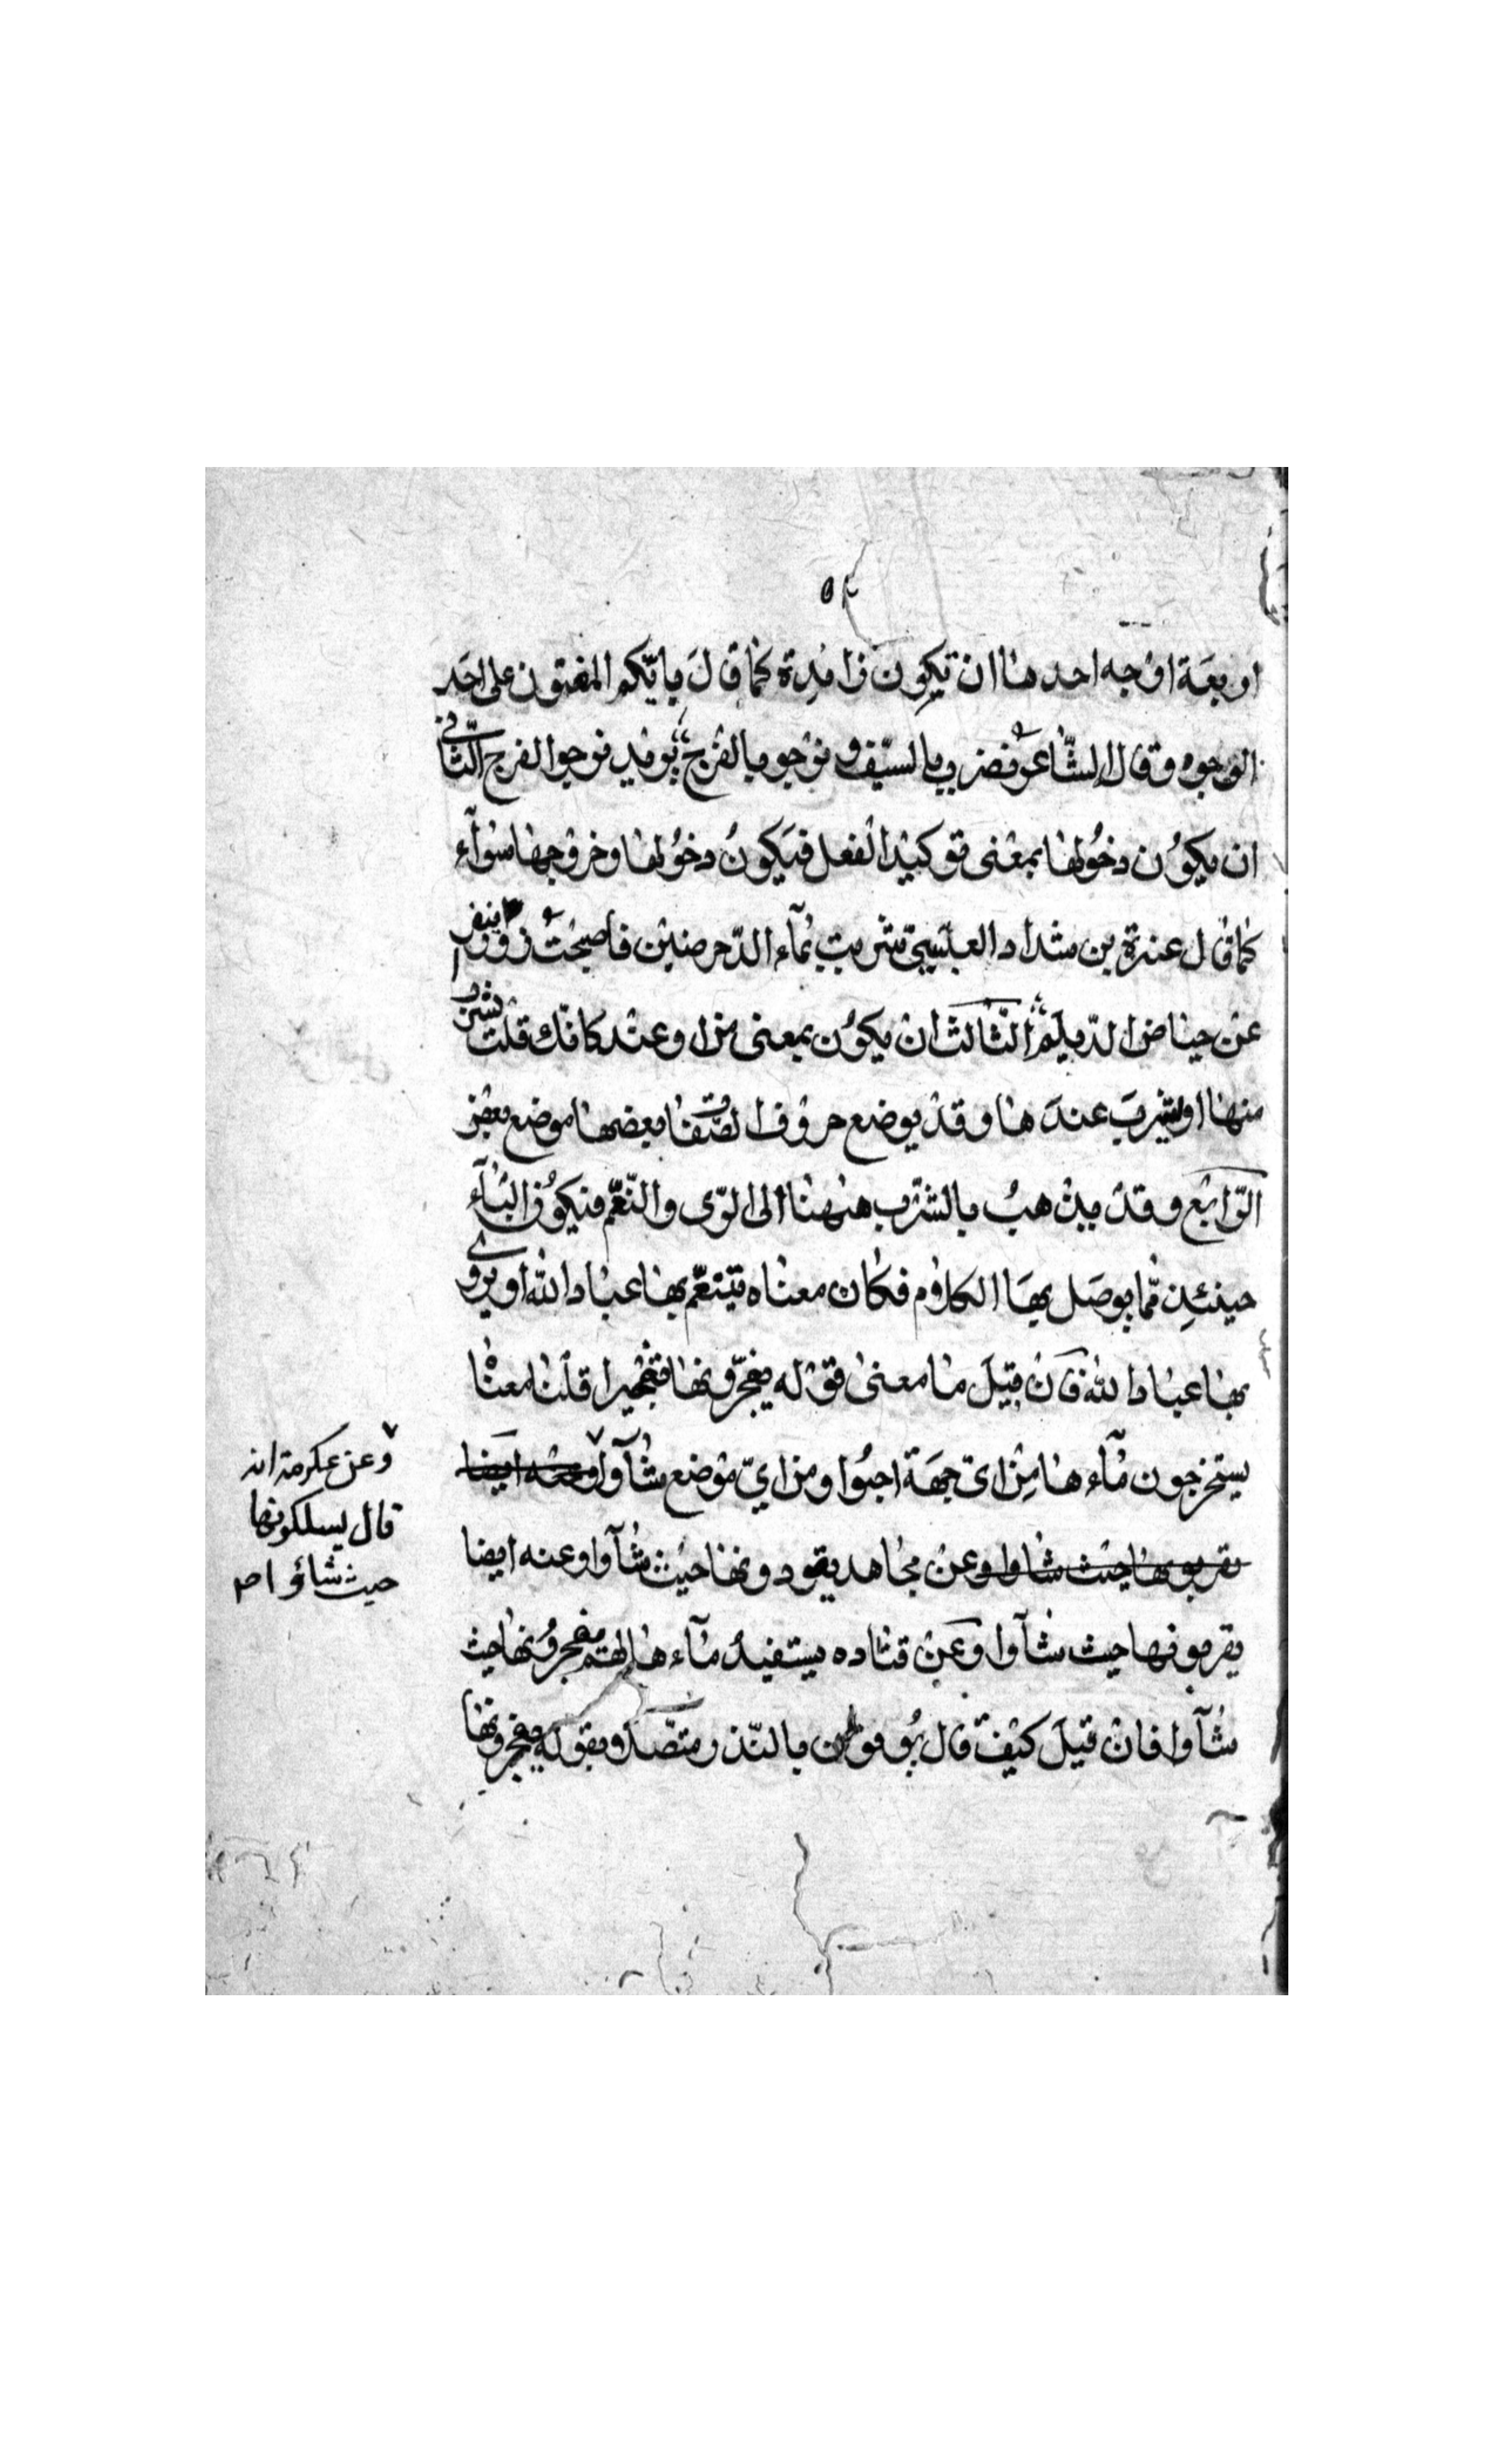 ٥٢
اربعة اوجه احدها ان تكون زايدة كما قالَ بايّكم المفتون على احَد
الوجوه وقال الشّاعر نضرب بالسيّف ونرجو بالفرج يريد نرجوا الفرج الثّاني
ان يكوُن دخُولها بمعْنى توكيْد الفعل فيَكونُ دخوُلها وخروجها سوآء
كما قال عنترة بن شداد العبْسيّ شربت بمآء الدّحرضيْن فأصبحَتْ زورآء تنفر
عنْ حياض الديلَم الثّالث انْ يكوُن بمعنى من او عنْد كانّك قلْت يشرب
منها او يشربَ عندَها وقدْ يوضع حروف الصّفات بعضها موضع بعْض
الرّابع وقدْ يذْهبُ بالشرْب هٰهنا الى الرّى والنّعّم فيكوُن البآء
حينئذٍ ممّا يوصَل بهَا الكلام فكان معناه يتنعّم بها عباد الله او يروى
بها عباد الله فَانْ قيلَ ما معنى قوْله يفجّرونها تفْجيرا قلْنا معناه
يستخرجون مآءها مِنْ اىّ جهَة احبّوا ومن ايّ موْضع شآوا وعنه ايضا
يقربونها حيْث شاوا وعنْ مجاهد يقودونها حيْث شآوا وعنه ايضا
يقربونها حيث شآوا وعَنْ قتاده يستفيدُ مآءها لهم يفجروُنها حيث
شآوا فانْ قيلَ كيْفَ قال يُوفون بالنّذر متصلا بقوله يفجرونها
وعن عكرمة انه
قال يسلكونها
حيث شاؤا صح